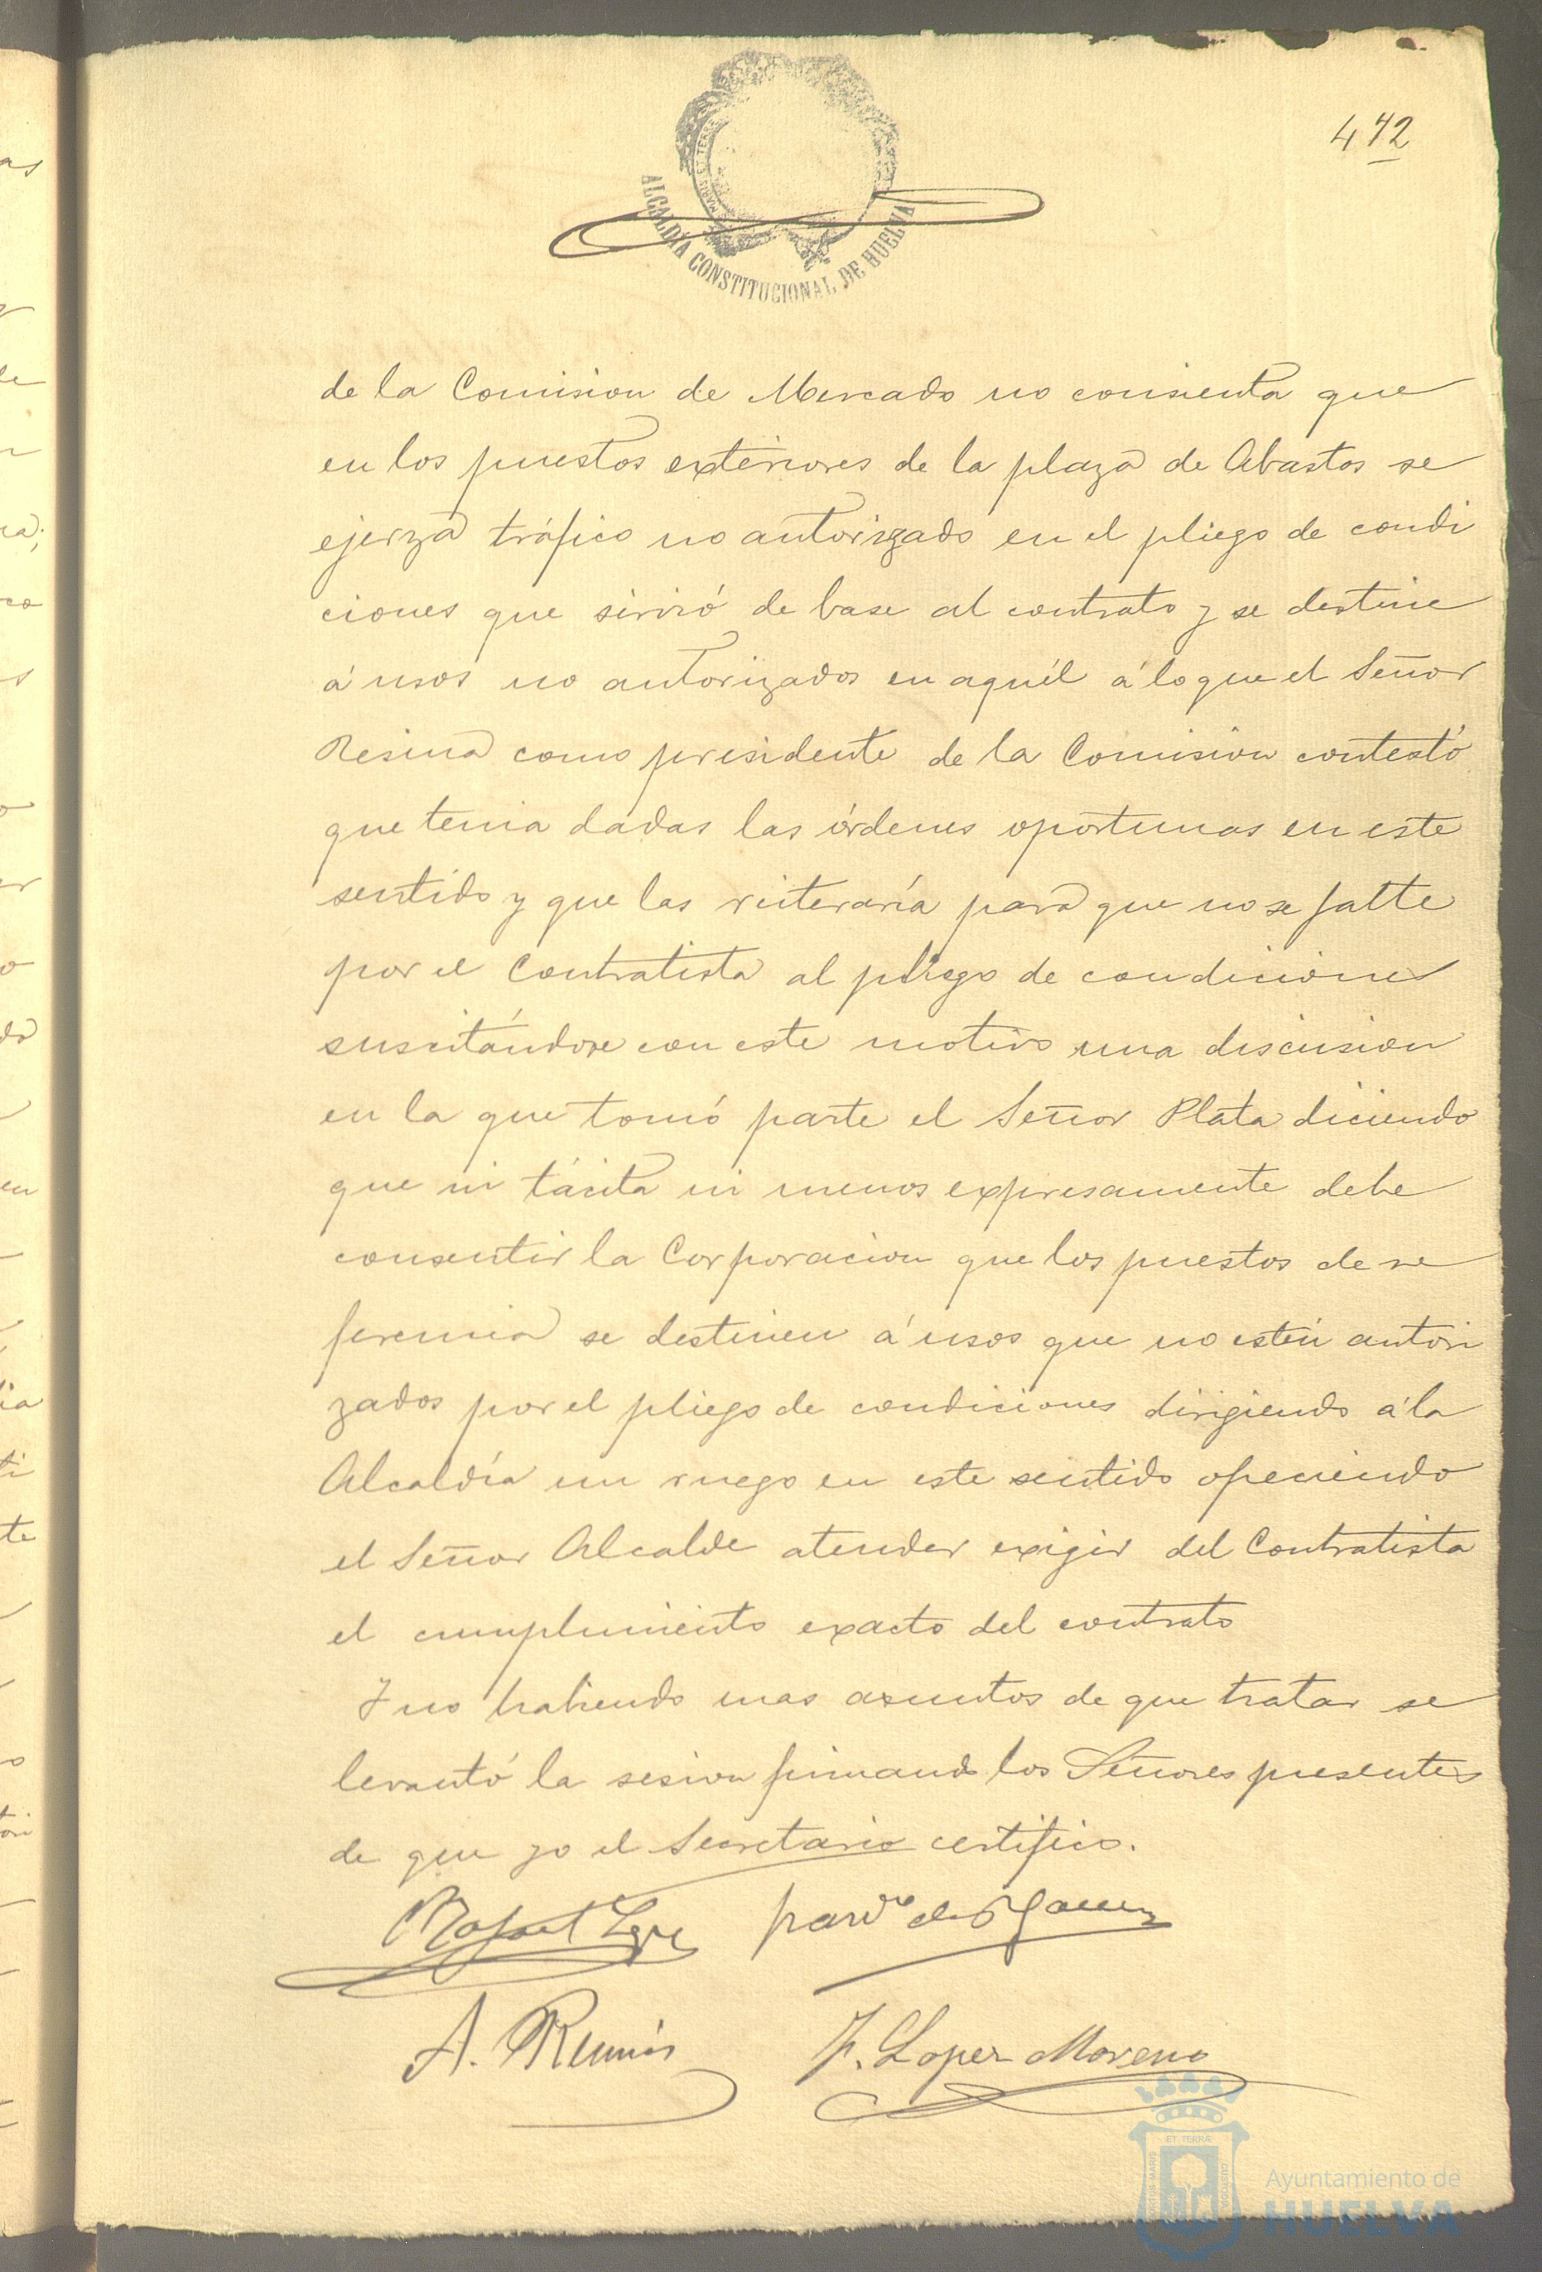 442
ALCALDÍA CONSTITUCIONAL DE HUELVA
de la Comision de Mercado no consienta que
en los puestos exteriores de la plaza de Abastos se
ejerza tráfico no autorizado en el pliego de condi
ciones que sirvió de base al contrato y se destine
á usos no autorizados en aquél á lo que el Señor
Resina como presidente de la Comision contestó
que tenia dadas las órdenes oportunas en este
sentido y que las reiteraría para que no se falte
por el Contratista al pliego de condiciones
suscitándose con este motivo una discusion
en la que tomó parte el Señor Plata diciendo
que ni tácita ni menos expresamente debe
consentir la Corporacion que los puestos de re
ferencia se destinen á usos que no estén autori
zados por el pliego de condiciones dirigiendo á la
Alcaldía un ruego en este sentido ofreciendo
el Señor Alcalde atender exigir del Contratista
el cumplimiento exacto del contrato
Y no habiendo mas asuntos de que tratar se
levantó la sesion firmando los Señores presentes
de que yo el Secretario certifico.
Rafael
A.
F. Lopez Moreno
ET TERRÆ
Ayuntamiento de
HUELVA